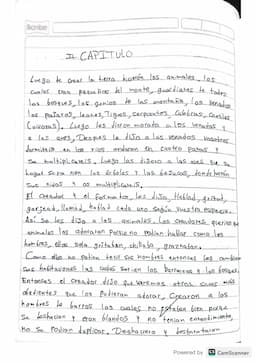 Scribe
II CAPITULO
Luego de crear la tierra hicieron los animales, los
cuales eran pequeños del monte, guardianes de todos
los bosques, los genios de las montañas, los venados
los pajaros, leones, tigres, serpientes, culebras, cantiles
(viboras). Luego les dieron morada a los venados y
a las aves, Despues le dijo a los venados vosotros
dormireis en los rios andaran en cuatro patas y
se multiplicareis. Luego les dijeron a las aves que su
hogar seran los arboles y los bejucos, donde haran
sus nidos y se multiplicareis.
El creador y el formador les dijo, Hablad, gritad,
gorjead, llamad, hablad cada uno segun vuestra especie.
Asi se les dijo a los animales. Los creadores querian que
animales los adoraran pero no podian hablar como los
hombres, ellos solo gritaban, chillaba, graznaban.
Como ellos no podian tener sus nombres entonces les cambiaron
sus habitaciones las cuales serian los barrancos y los bosques
Entonces el creador dijo que haremos otros seres mas
obedientes que los pudieran adorar, Crearon a los
hombres de barros los cuales no estaban bien porque
se deshacian y eran blandos y no tenian entendimiento,
no se podian duplicar. Deshacieron y desbarataron
Powered by CS CamScanner